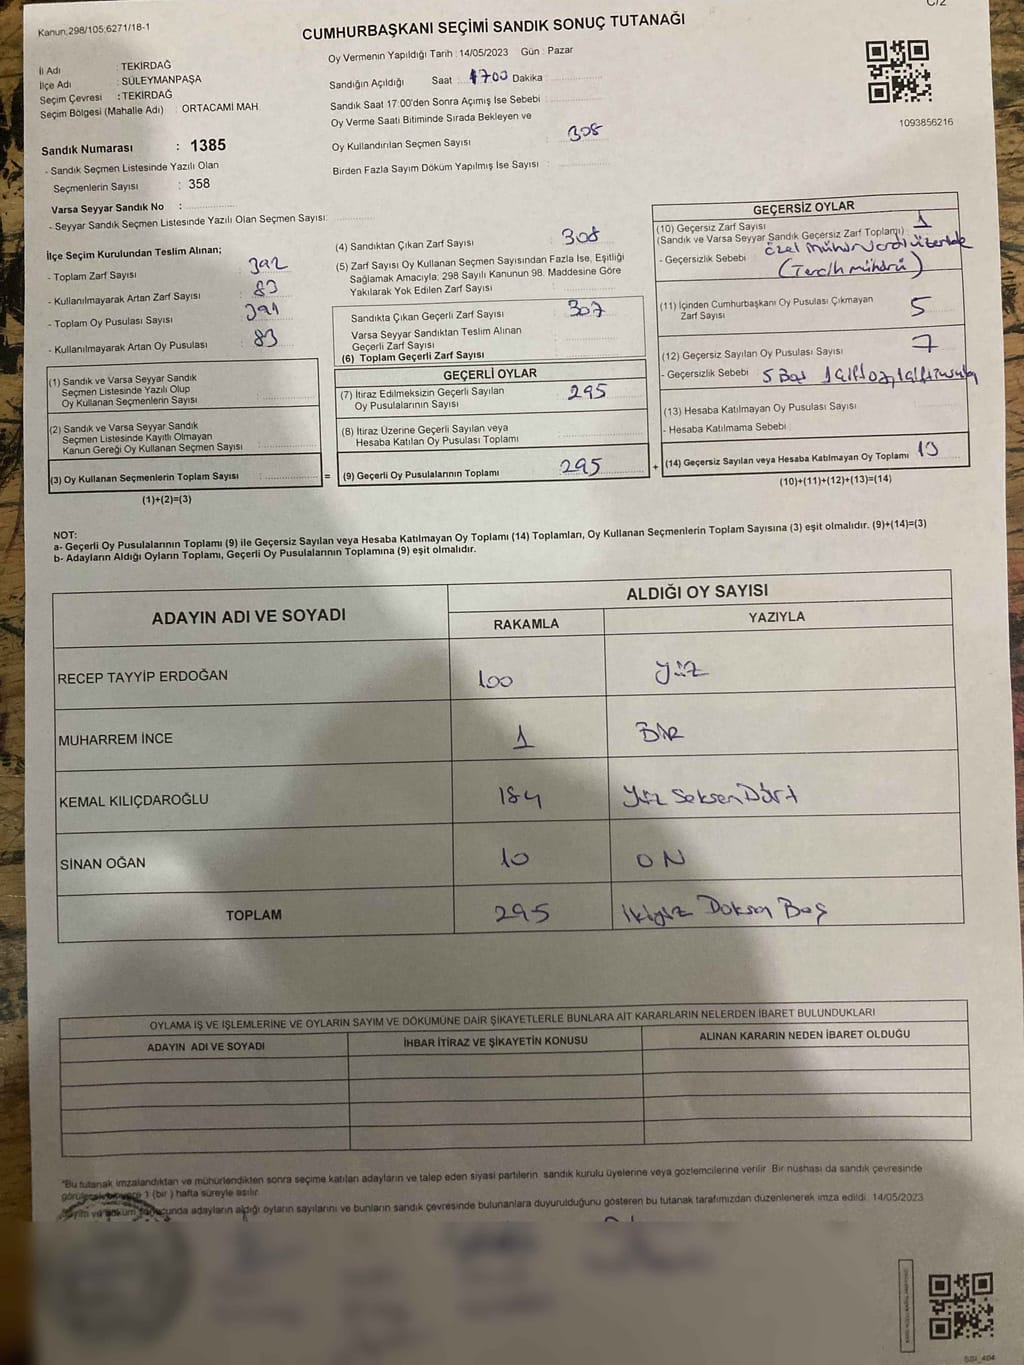 Kanun;298/105;6271/18-1
C/2
CUMHURBAŞKANI SEÇİMİ SANDIK SONUÇ TUTANAĞI
İl Adı : TEKİRDAĞ
İlçe Adı : SÜLEYMANPAŞA
Seçim Çevresi : TEKİRDAĞ
Seçim Bölgesi (Mahalle Adı) : ORTACAMİ MAH.
Sandık Numarası : 1385
- Sandık Seçmen Listesinde Yazılı Olan
Seçmenlerin Sayısı : 358
Varsa Seyyar Sandık No :
- Seyyar Sandık Seçmen Listesinde Yazılı Olan Seçmen Sayısı:
Oy Vermenin Yapıldığı Tarih : 14/05/2023 Gün : Pazar
Sandığın Açıldığı Saat : 1700 Dakika :
Sandık Saat 17:00'den Sonra Açımış İse Sebebi :
Oy Verme Saati Bitiminde Sırada Bekleyen ve
Oy Kullandırılan Seçmen Sayısı : 308
Birden Fazla Sayım Döküm Yapılmış İse Sayısı :
1093856216
İlçe Seçim Kurulundan Teslim Alınan;
- Toplam Zarf Sayısı : 392
- Kullanılmayarak Artan Zarf Sayısı : 83
- Toplam Oy Pusulası Sayısı : 391
- Kullanılmayarak Artan Oy Pusulası : 83
(1) Sandık ve Varsa Seyyar Sandık
Seçmen Listesinde Yazılı Olup
Oy Kullanan Seçmenlerin Sayısı :
(2) Sandık ve Varsa Seyyar Sandık
Seçmen Listesinde Kayıtlı Olmayan
Kanun Gereği Oy Kullanan Seçmen Sayısı :
(3) Oy Kullanan Seçmenlerin Toplam Sayısı :
(1)+(2)=(3)
=
(4) Sandıktan Çıkan Zarf Sayısı : 308
(5) Zarf Sayısı Oy Kullanan Seçmen Sayısından Fazla İse, Eşitliği
Sağlamak Amacıyla, 298 Sayılı Kanunun 98. Maddesine Göre
Yakılarak Yok Edilen Zarf Sayısı :
Sandıkta Çıkan Geçerli Zarf Sayısı : 307
Varsa Seyyar Sandıktan Teslim Alınan
Geçerli Zarf Sayısı :
(6) Toplam Geçerli Zarf Sayısı
GEÇERLİ OYLAR
(7) İtiraz Edilmeksizin Geçerli Sayılan
Oy Pusulalarının Sayısı : 295
(8) İtiraz Üzerine Geçerli Sayılan veya
Hesaba Katılan Oy Pusulası Toplamı :
(9) Geçerli Oy Pusulalarının Toplamı : 295
+
GEÇERSİZ OYLAR
(10) Geçersiz Zarf Sayısı
(Sandık ve Varsa Seyyar Sandık Geçersiz Zarf Toplamı) : 1
- Geçersizlik Sebebi : özel mühür vardı üzerinde
(Tercih mührü)
(11) İçinden Cumhurbaşkanı Oy Pusulası Çıkmayan
Zarf Sayısı : 5
(12) Geçersiz Sayılan Oy Pusulası Sayısı : 7
- Geçersizlik Sebebi : 5 Boş 1 çift oy, 1 çift
(13) Hesaba Katılmayan Oy Pusulası Sayısı :
- Hesaba Katılmama Sebebi :
(14) Geçersiz Sayılan veya Hesaba Katılmayan Oy Toplamı : 13
(10)+(11)+(12)+(13)=(14)
NOT:
a- Geçerli Oy Pusulalarının Toplamı (9) ile Geçersiz Sayılan veya Hesaba Katılmayan Oy Toplamı (14) Toplamları, Oy Kullanan Seçmenlerin Toplam Sayısına (3) eşit olmalıdır. (9)+(14)=(3)
b- Adayların Aldığı Oyların Toplamı, Geçerli Oy Pusulalarının Toplamına (9) eşit olmalıdır.
ADAYIN ADI VE SOYADI
ALDIĞI OY SAYISI
RAKAMLA YAZIYLA
RECEP TAYYİP ERDOĞAN 100 Yüz
MUHARREM İNCE 1 BİR
KEMAL KILIÇDAROĞLU 184 Yüz Seksen Dört
SİNAN OĞAN 10 ON
TOPLAM 295 ikiyüz Doksan Beş
OYLAMA İŞ VE İŞLEMLERİNE VE OYLARIN SAYIM VE DÖKÜMÜNE DAİR ŞİKAYETLERLE BUNLARA AİT KARARLARIN NELERDEN İBARET BULUNDUKLARI
ADAYIN ADI VE SOYADI İHBAR İTİRAZ VE ŞİKAYETİN KONUSU ALINAN KARARIN NEDEN İBARET OLDUĞU
*Bu tutanak imzalandıktan ve mühürlendikten sonra seçime katılan adayların ve talep eden siyasi partilerin sandık kurulu üyelerine veya gözlemcilerine verilir. Bir nüshası da sandık çevresinde
1 (bir ) hafta süreyle asılır.
adayların aldığı oyların sayılarını ve bunların sandık çevresinde bulunanlara duyurulduğunu gösteren bu tutanak tarafımızdan düzenlenerek imza edildi. 14/05/2023